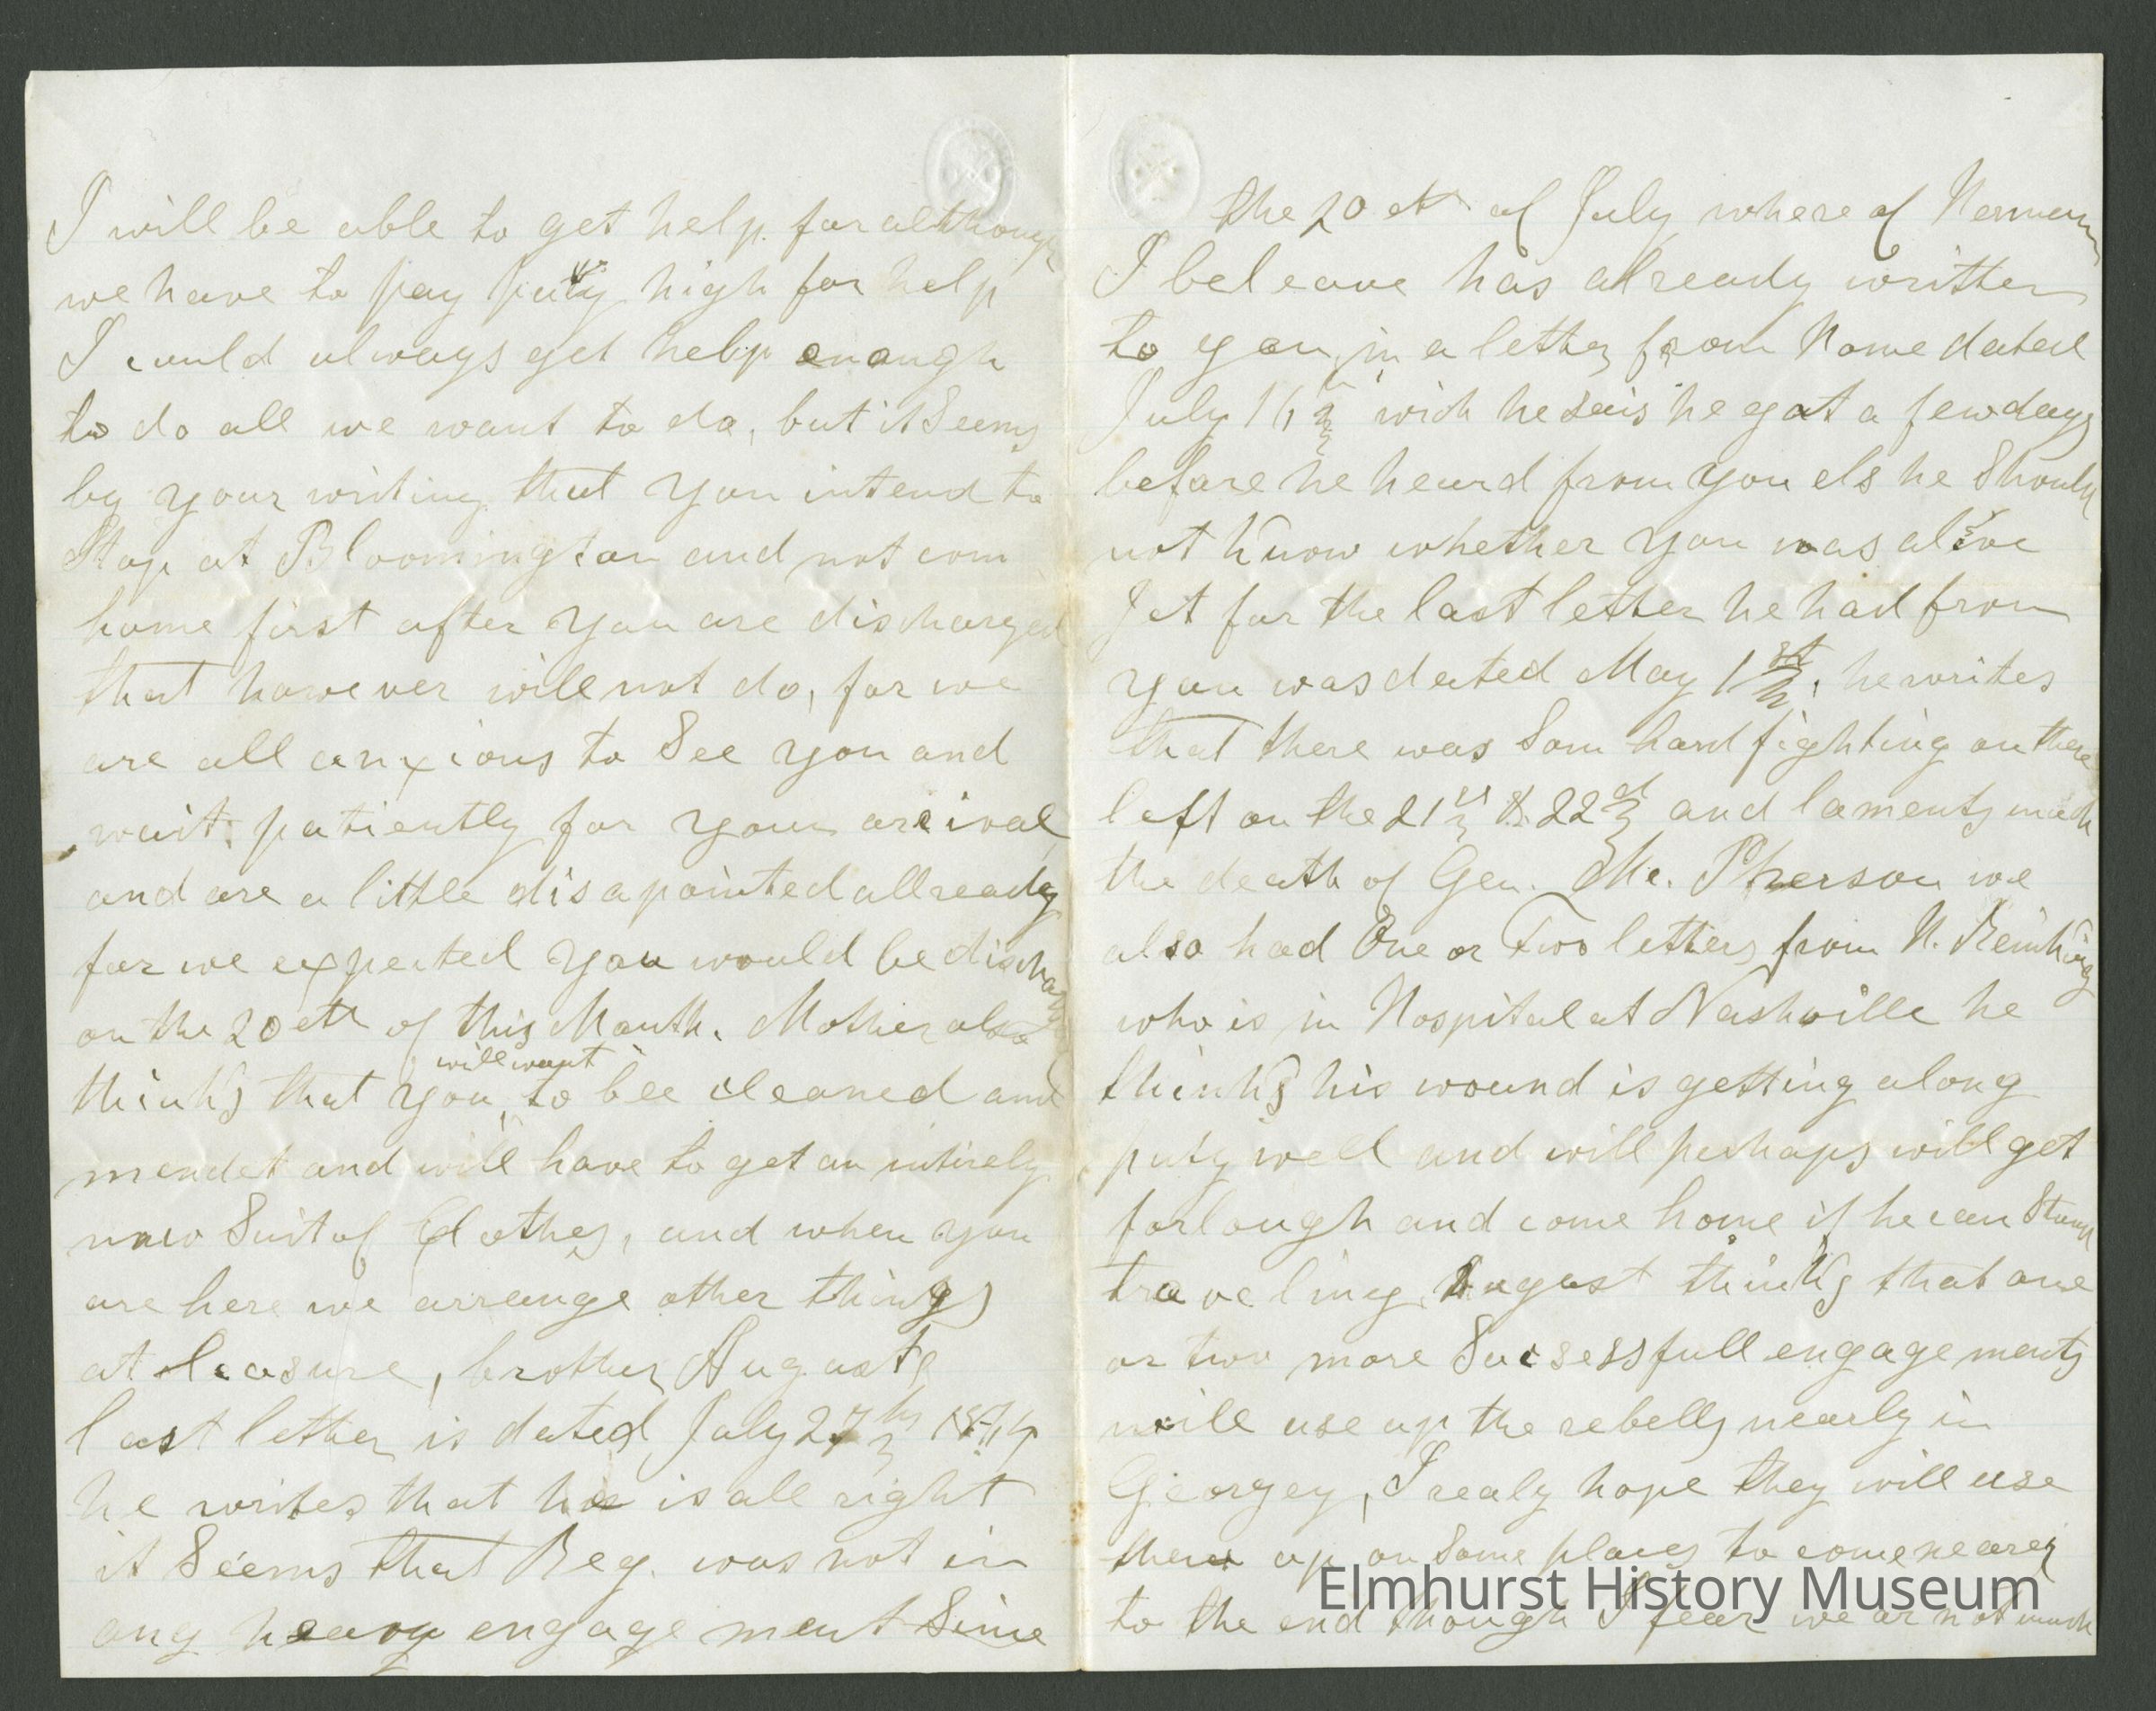 I will be able to get help. for although
we have to pay puty high for help
I could always get help enough
to do all we want to do, but it Seems
by your writing that you intend to
Stop at Bloomington and not com
home first after you are discharged
that however will not do, for we
are all anxious to See you and
wait patiently for your arival
and are a little disapointed allready
for we expected you would be discharged
on the 20eth of this Month. Mother also
will want
thinks that you to bee cleaned and
mendet and will have to get an intirely
new Suit of Clothes, and when you
are here we arrange other things
at leasure, brother Augusts
last letter is dated July 27th 1864
he writes that he is all right
it Seems that Reg. was not in
any heavy engagement Sinie
the 20eth of July where of Herman
I beleave has already written
to you, in a letter from Home dated
July 16 wich he sais he got a few days
before he heard from you els he Should
not know whether you was alive
Jet for the last letter he had from
you was dated May 1st, he writes
that there was Som hard fighting on there
left on the 21st & 22d and laments much
the death of Gen. Mc. Pherson we
also had One or Two letters from H. Reinking
who is in Hospital at Nashville he
thinks his wound is getting along
puty well and will perhaps will get
forlough and come home if he can Stand
traveling, August thinks that one
or two more Sucsessfull engagements
will use up the rebells nearly in
Georgey, I realy hope they will use
them up on Some places to come nearer
to the end though I fear we ar not much
Elmhurst History Museum